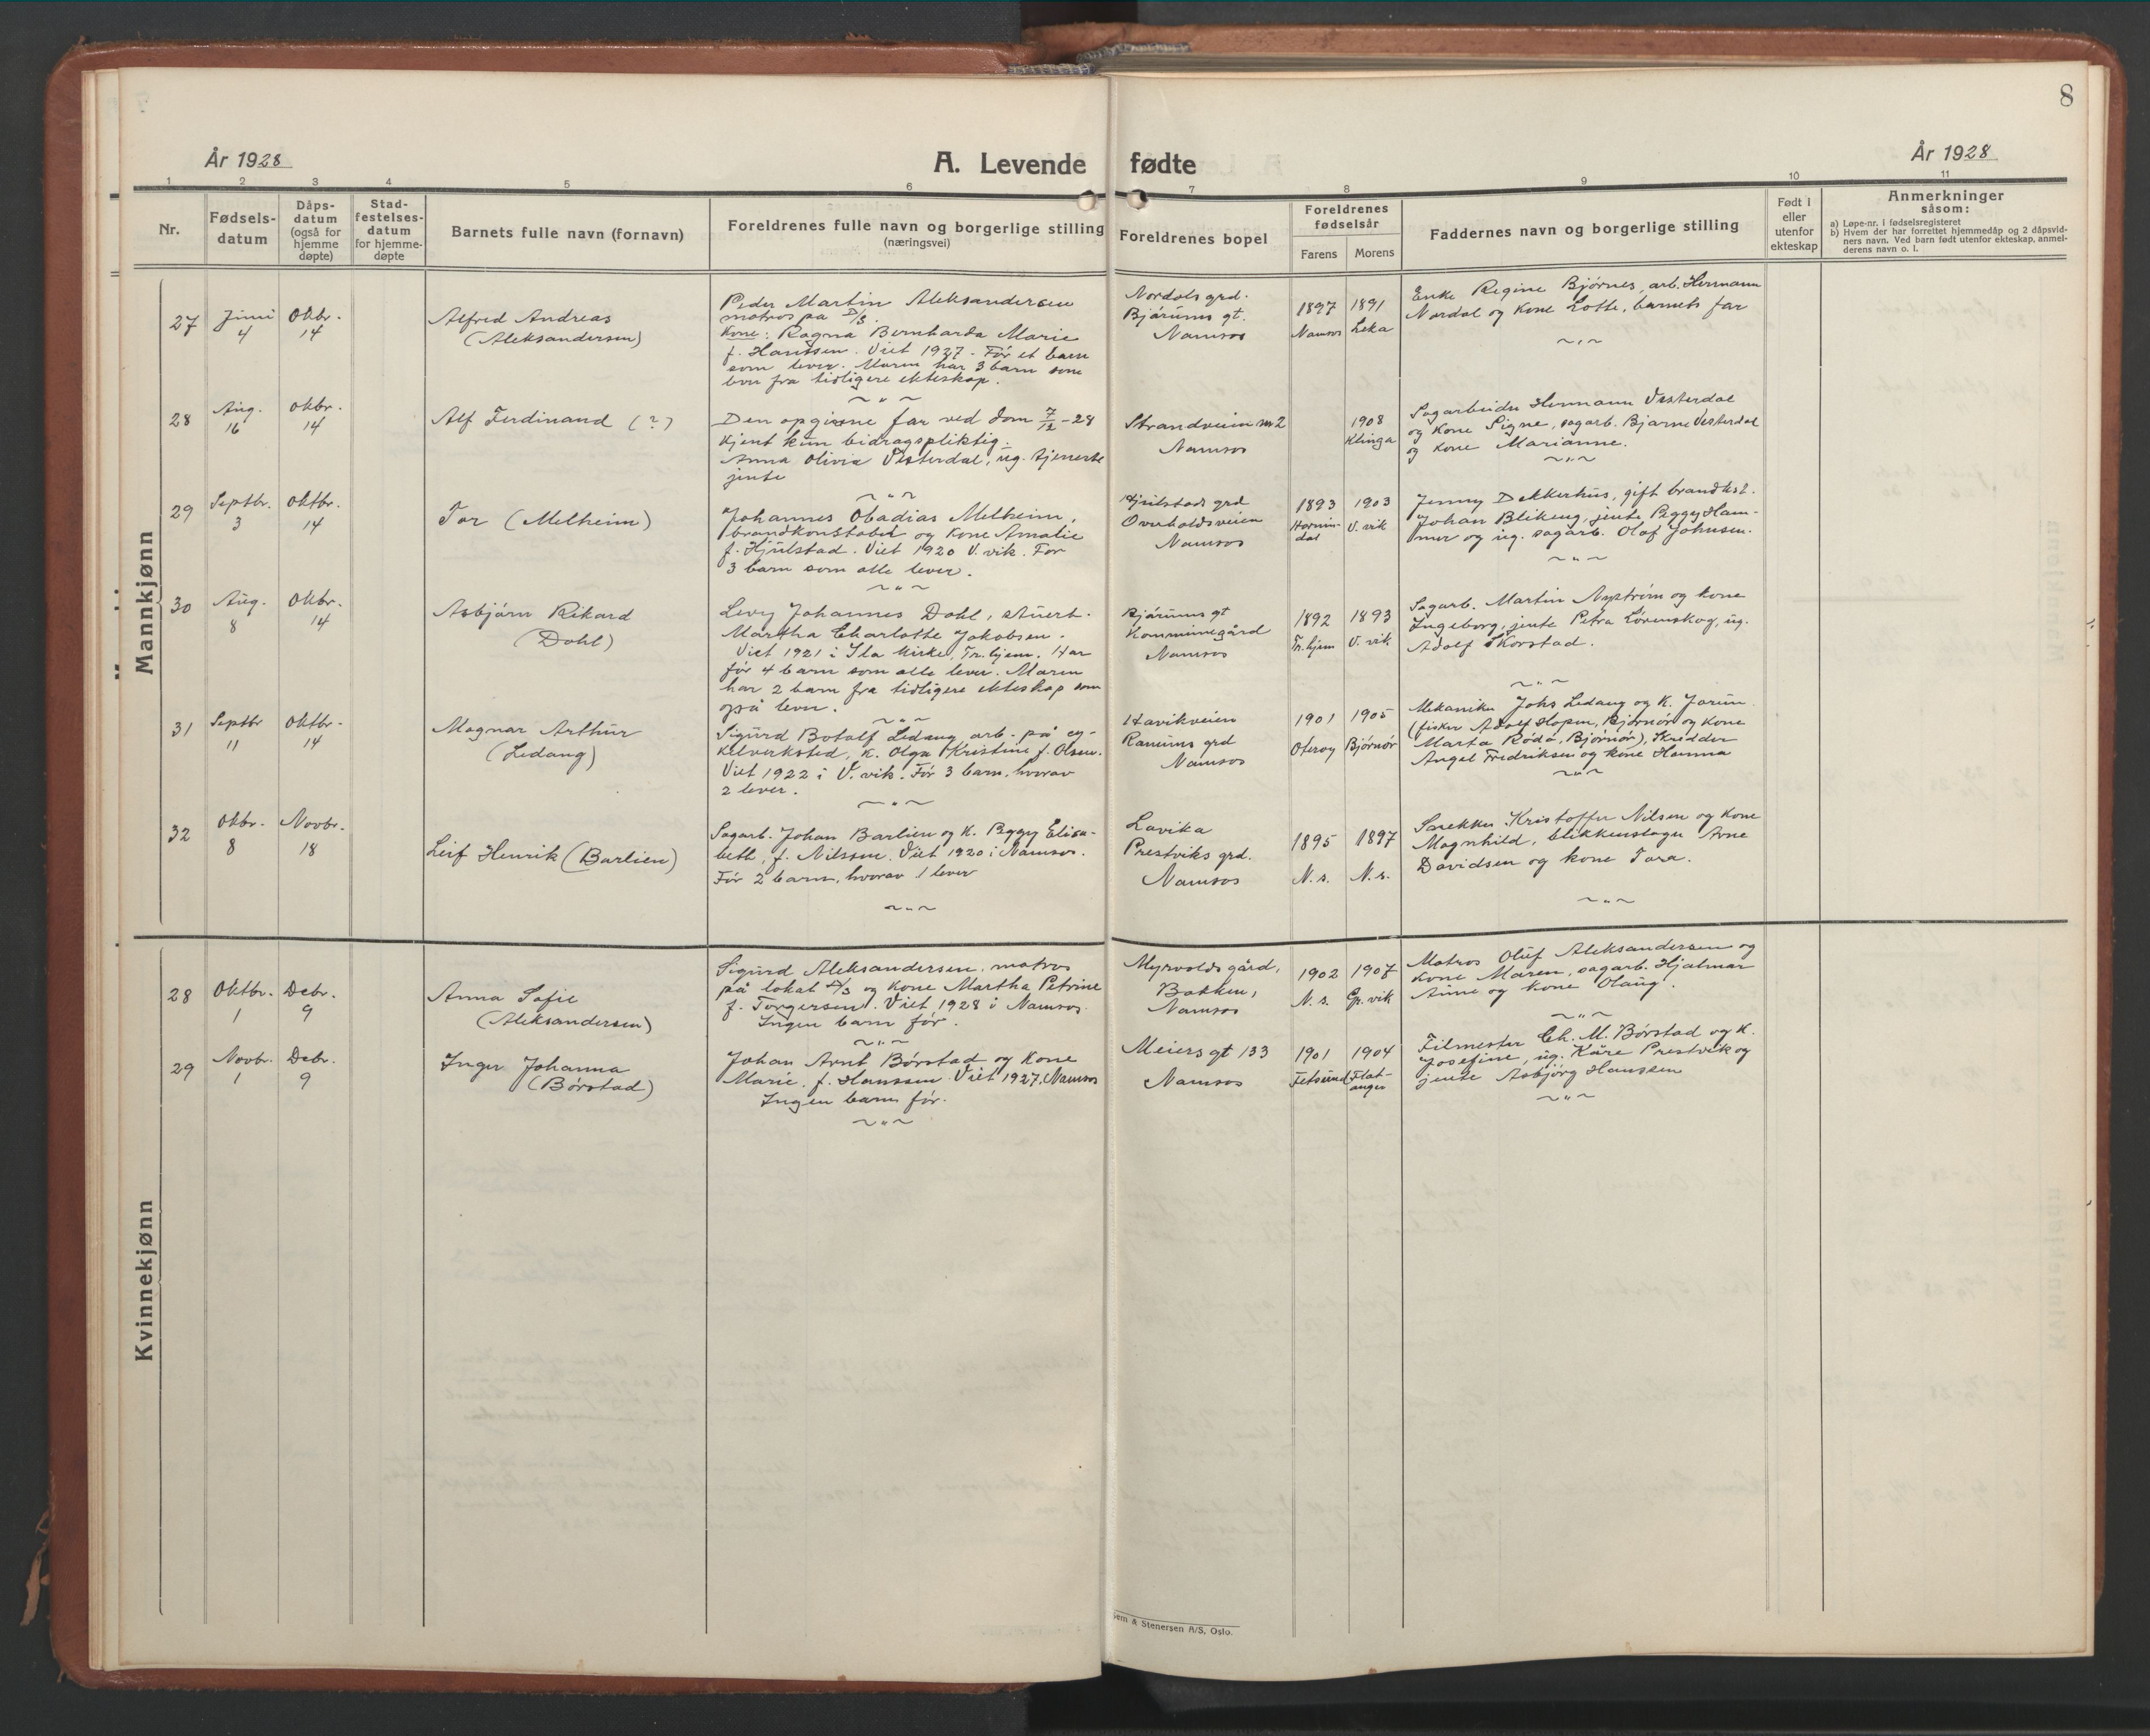 8
År 1928
A. Levende fødte
År 1928
1 2 3 4 5 6 7 8 9 10 11
Nr.
Fødsels-
datum
Dåps-
datum
(også for
hjemme
døpte)
Stad-
festelses-
datum
for hjemme-
døpte
Barnets fulle navn (fornavn)
Foreldrenes fulle navn og borgerlige stilling
(næringsvei)
Foreldrenes bopel
Foreldrenes
fødselsår
Farens Morens
Faddernes navn og borgerlige stilling
Født i
eller
utenfor
ekteskap
Anmerkninger
såsom:
a) Løpe-nr. i fødselsregisteret
b) Hvem der har forrettet hjemmedåp og 2 dåpsvid-
ners navn. Ved barn født utenfor ekteskap, anmel-
derens navn o. l.
Mannkjønn
27
Juni
4
Oktbr.
14
Alfred Andreas
(Aleksandersen)
Peder Martin Aleksandersen
matros på D/S.
Kone: Ragna Bernharda Marie
f. Hanssen. Viet 1927. Før et barn
som lever. Moren har 3 barn som
lever fra tidligere ekteskap.
Nordals grd.
Bjørums gt.
Namsos
1897
Namsos
1891
Leka
Enke Regine Bjørnes, arb. Hermann
Nordal og kone Lotte, barnets far
28
Aug.
16
Oktbr.
14
Alf Ferdinand (?)
Den opgivne far ved dom 7/12-28
kjent kun bidragspliktig.
Anna Olivia Vesterdal, ug. tjeneste
jente
Strandveien nr 2
Namsos
1908
Klinga
Sagarbeider Hermann Vesterdal
og kone Signe, sagarb. Bjarne Vesterdal
og kone Marianne.
29
Septbr.
3
Oktbr.
14
Tor (Melheim)
Johannes Obadias Melheim,
brandkonstabel og kone Amalie
f. Hjulstad. Viet 1920 V. vik. Før
3 barn som alle lever.
Hjulstads grd
Overhaldsveien
Namsos
1893
Hornin-
dal
1903
V. vik
Jenny Dekkerhus, gift brandkst.
Johan Blikeng, jente Peggy Ham-
mer og ug. sagarb. Olaf Johnsen.
30
Aug.
8
Oktbr.
14
Asbjørn Rikard
(Dahl)
Levy Johannes Dahl, stuert.
Martha Charlotte Jakobsen.
Viet 1921 i Ila kirke, Tr.hjem. Har
før 4 barn som alle lever. Moren
har 2 barn fra tidligere ekteskap som
også lever.
Bjørums gt
Kommunegård
Namsos
1892
Tr.hjem
1893
V. vik
Sagarb. Martin Nystrøm og kone
Ingeborg, jente Petra Lövenskog, ug.
Adolf Skorstad.
31
Septbr
11
Oktbr.
14
Magnar Arthur
(Ledang)
Sigurd Botolf Ledang, arb. på cy-
kelverksted, K. Olga Kristine f. Olsen.
Viet 1922 i V. vik. Før 3 barn, hvorav
2 lever.
Havikveien
Ranums grd
Namsos
1901
Oterøy
1905
Bjørnør
Mekaniker Johs Ledang og K. Jorun
(fisker Adolf Hopen, Bjørnør og kone
Marta Rödö, Bjørnør), Skredder
Angel Fredriksen og kone Hanna
32
Oktbr.
8
Novbr.
18
Leif Henrik (Barlien)
Sagarb. Johan Barlien og K. Peggy Elisa-
beth, f. Nilssen. Viet 1920 i Namsos.
Før 2 barn, hvorav 1 lever
Lavika
Prestviks grd.
Namsos
1895
N. s.
1897
N. s.
Snekker Kristoffer Nilsen og kone
Magnhild, blikkenslager Arne
Davidsen og kone Tora.
Kvinnekjønn
28
Oktbr.
1
Debr.
9
Anna Sofie
(Aleksandersen)
Sigurd Aleksandersen, matros
på lokal D/S og kone Martha Petrine
f. Torgersen. Viet 1928 i Namsos.
Ingen barn før.
Myrvolds gård,
Bakken,
Namsos
1902
N. s.
1907
Gr. vik
Matros Oluf Aleksandersen og
kone Maren, sagarb. Hjalmar
Aune og kone Olaug.
29
Novbr.
1
Debr.
9
Inger Johanna
(Børstad)
Johan Arnt Børstad og kone
Marie, f. Hanssen. Viet 1927, Namsos
Ingen barn før.
Meiers gt 133
Namsos
1901
Fetsund
1904
Flat-
anger
Filmester Chr. M. Børstad og K.
Josefine, ug. Kåre Prestvik og
jente Asbjørg Hanssen
Sem & Stenersen A/S, Oslo.